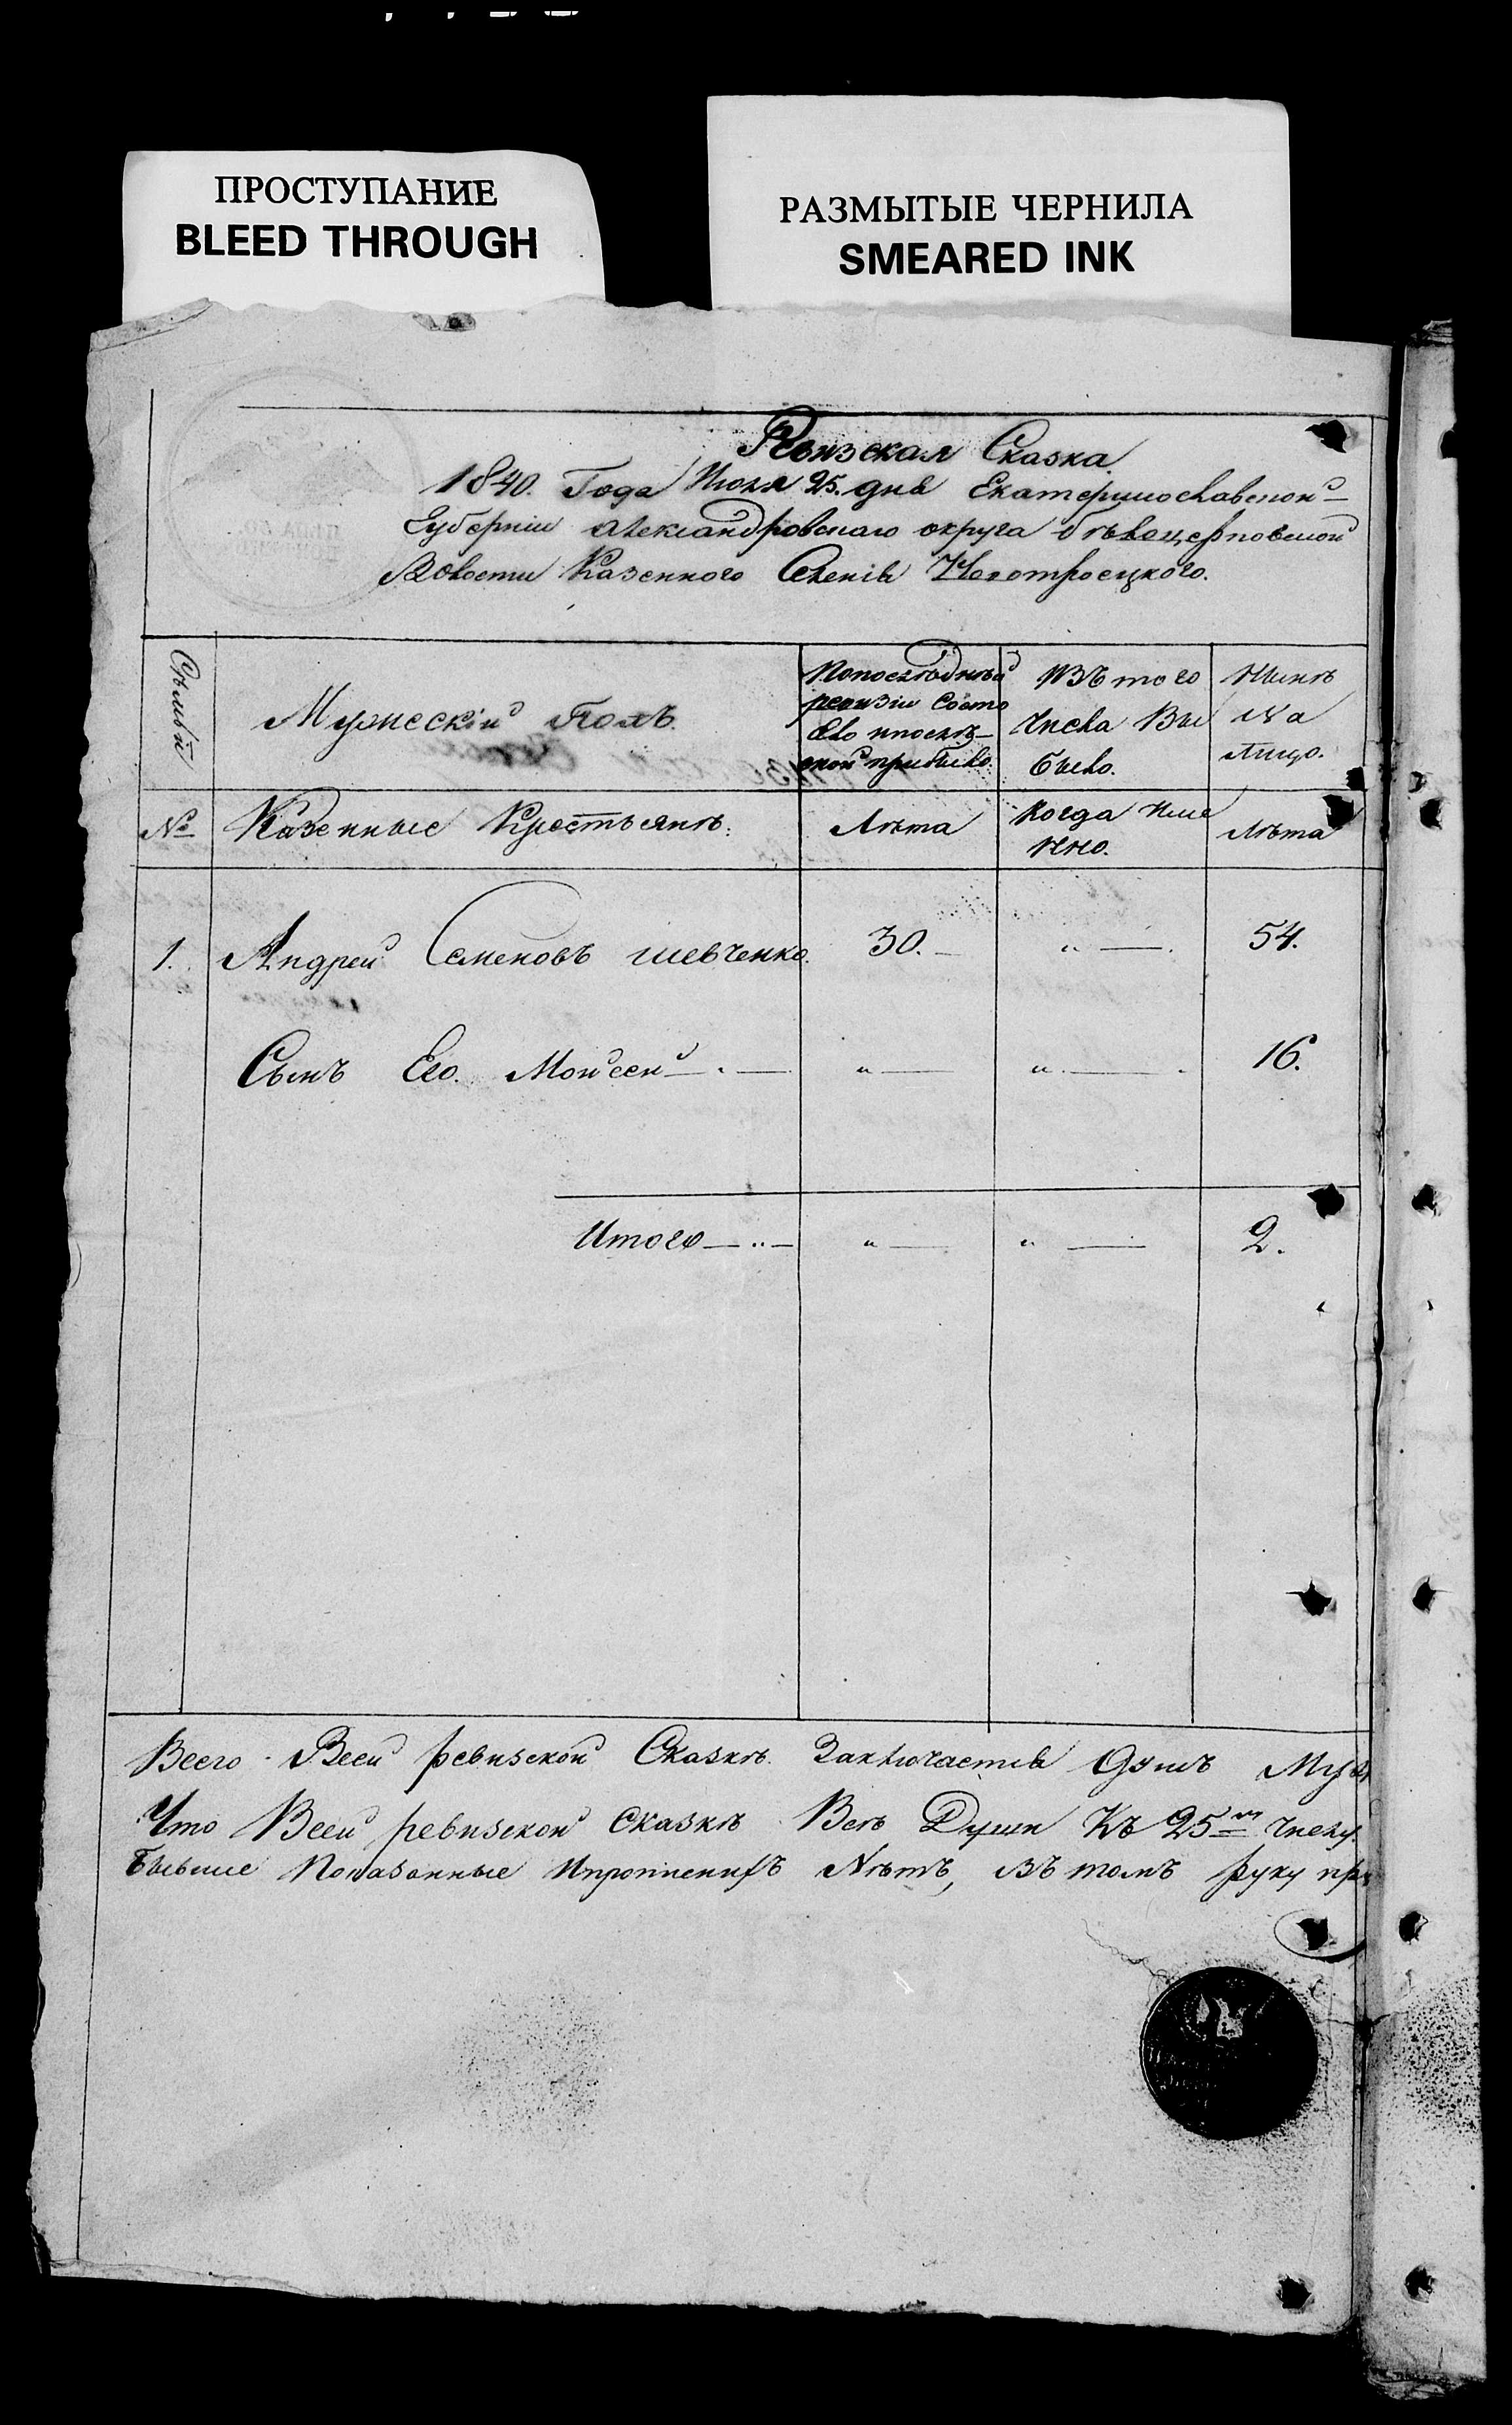 ПРОСТУПАНИЕ
BLEED THROUGH
РАЗМЫТЫЕ ЧЕРНИЛА
SMEARED INK
Ревизская Сказка
1840. Года Июля 25. дня Екатеринославской
Губернии Александровского округа
Волости Казенного Селенія Новотроецкого.
Семьи
Мужескій Полъ.
Попоследней
ревизіи Состо
яло ипослѣ
оной прибыло.
ИЗЪ того
Числа Вы
было.
Нынѣ
На
Лицо.
№
Казенные Крестьянѣ:
Лѣта
Когда Име
нно.
Лѣта
1. Андрей Семеновъ шевченко. 30. — „ — 54.
Сынъ Его Мойсей — „ — „ — 16.
Итого — „ — „ — „ — 2.
Всего Всей ревизской Сказкѣ Заключается Душъ Муж
Что Всей ревизской Сказкѣ Всѣ Души Къ 25 числу
бывшие Показанные Ипропиеныхъ Нѣтъ, въ томъ руку при